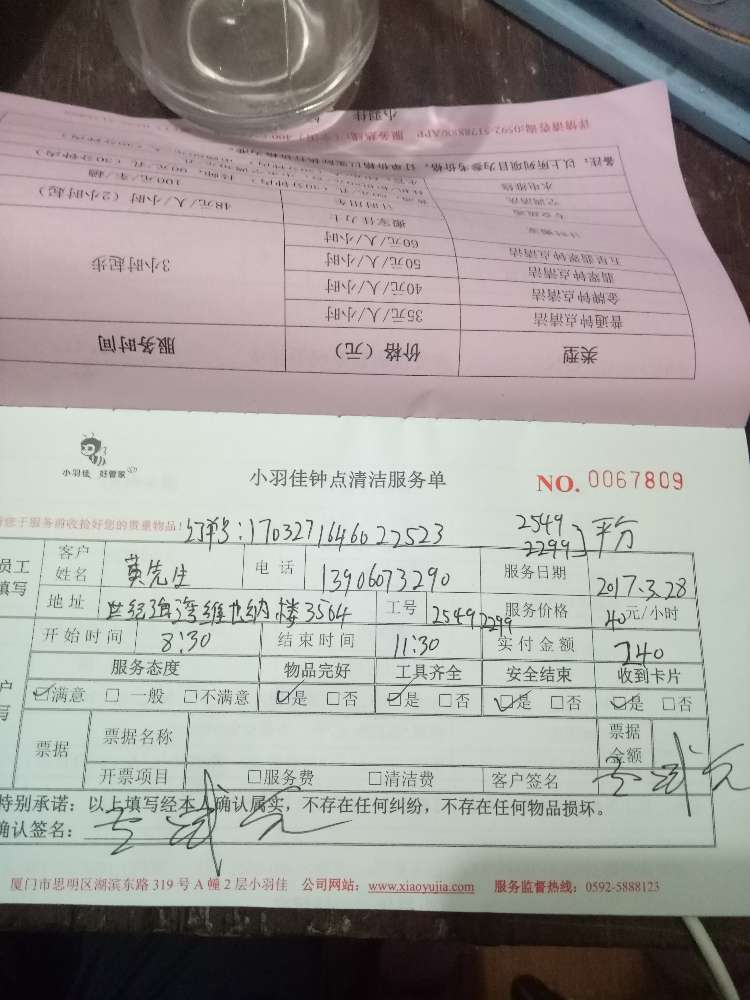 详情请咨询:0592-5178890APP 服务热线:
小羽佳
备注：以上所列项目为参考价格，订单价格以
水电维修
空调清洗
100元/车/辆
计时搬家
搬家佳力士
48元/人/小时（2小时起）
五星翡翠钟点清洁 60元/人/小时
翡翠钟点清洁 50元/人/小时
金牌钟点清洁 40元/人/小时
3小时起步
普通钟点清洁 35元/人/小时
类型 价格（元） 服务时间
小羽佳 好管家
小羽佳钟点清洁服务单 NO. 0067809
您于服务前收拾好您的贵重物品！ 订单号：1703271646022523 2549 2299 平分
员工填写 客户姓名 黄先生 电话 13906073290 服务日期 2017.3.28
地址 世纪海湾维也纳楼3564 工号 2549 2299 服务价格 40元/小时
开始时间 8:30 结束时间 11:30 实付金额 240
服务态度 物品完好 工具齐全 安全结束 收到卡片
满意 一般 不满意 是 否 是 否 是 否 是 否
票据 票据名称 票据金额
开票项目 服务费 清洁费 客户签名
特别承诺：以上填写经本人确认属实，不存在任何纠纷，不存在任何物品损坏。
确认签名：
厦门市思明区湖滨东路319号A幢2层小羽佳 公司网站：www.xiaoyujia.com 服务监督热线：0592-5888123